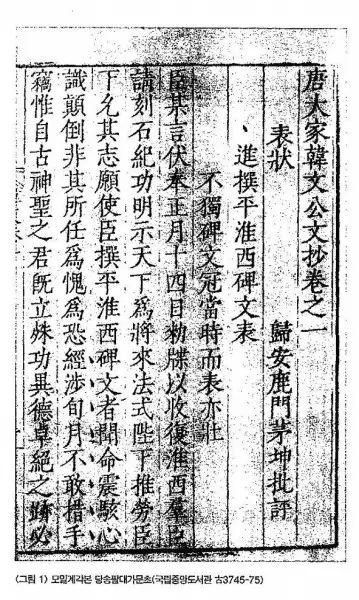 唐大家韓文公文抄卷之一
歸安鹿門茅坤批評
表狀
進撰平淮西碑文表
不獨碑文冠當時而表亦壯
臣某言伏奉正月十四日勑牒以收復淮西羣臣
請刻石紀功明示天下爲將來法式陛下推勞臣
下允其志願使臣撰平淮西碑文者聞命震駭心
識顛倒非其所任爲愧爲恐經涉旬月不敢措手
竊惟自古神聖之君旣立殊功異德卓絕之跡必
(그림 1) 모밀계각본 당송팔대가문초(국립중앙도서관 古3745-75)